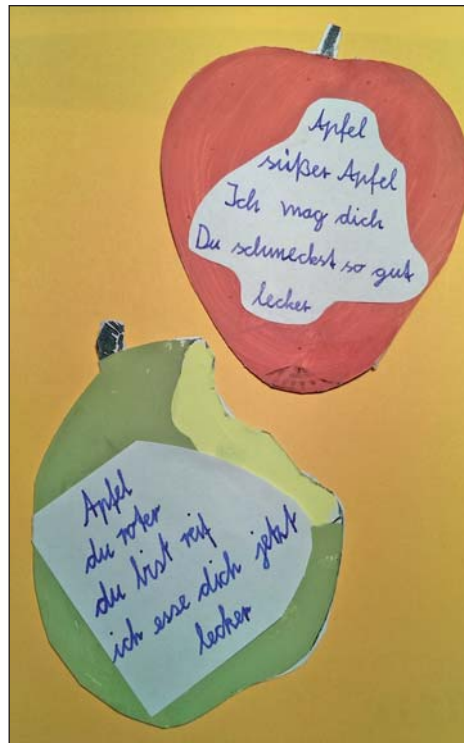 Apfel
süßer Apfel
Ich mag dich
Du schmeckst so gut
lecker
Apfel
du roter
du bist reif
ich esse dich jetzt
lecker